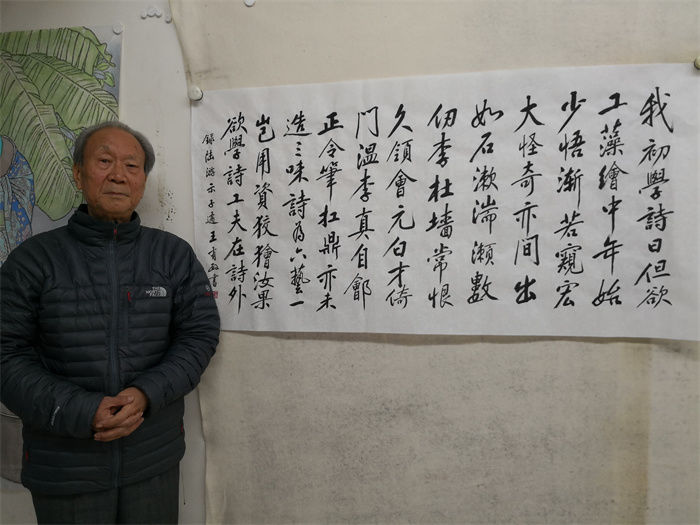 我初學詩日但欲
工藻繪中年始
少悟漸若窺宏
大怪奇亦間出
如石漱湍瀨數
仞李杜墻常恨
欠領會元白才倚
門溫李真自鄶
正令筆扛鼎亦未
造三昧詩為六藝一
豈用資狡獪汝果
欲學詩工夫在詩外
錄陸游示子遹 王書
THE NORTH FACE